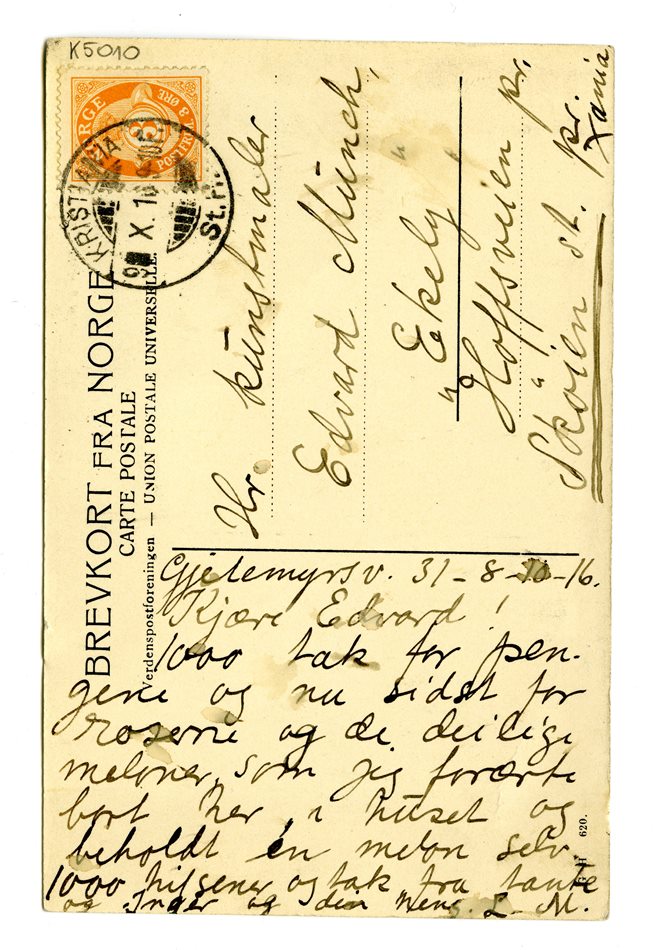 K5010
NORGE
POSTFRIM 8 ØRE
KRISTIANIA
X. 16
St.P.
BREVKORT FRA NORGE
CARTE POSTALE
Verdenspostforeningen — UNION POSTALE UNIVERSELLE.
Hr. kunstmaler
Edvard Munch,
"Ekely"
Hoffsveien pr.
Skøien st. pr.
Xania
Gjetemyrsv. 31-8-10-16.
Kjære Edvard!
1000 tak for pen-
gene og nu sidst for
roserne og de deilige
meloner, som jeg forærte
bort her i huset og
beholdt en melon selv.
1000 hilsener og tak fra tante
og Inger og din L. M.
620.